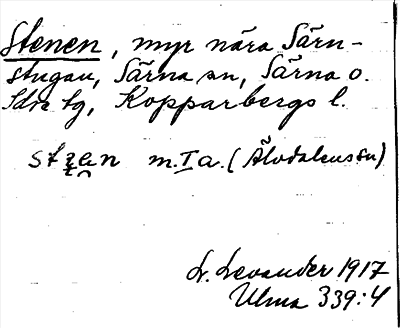 Stenen, myr nära Särn-
stugan, Särna sn, Särna o.
Idre tg, Kopparbergs l.
m. I a. (Älvdalens sn)
L. Levander 1917
Ulma 339:4